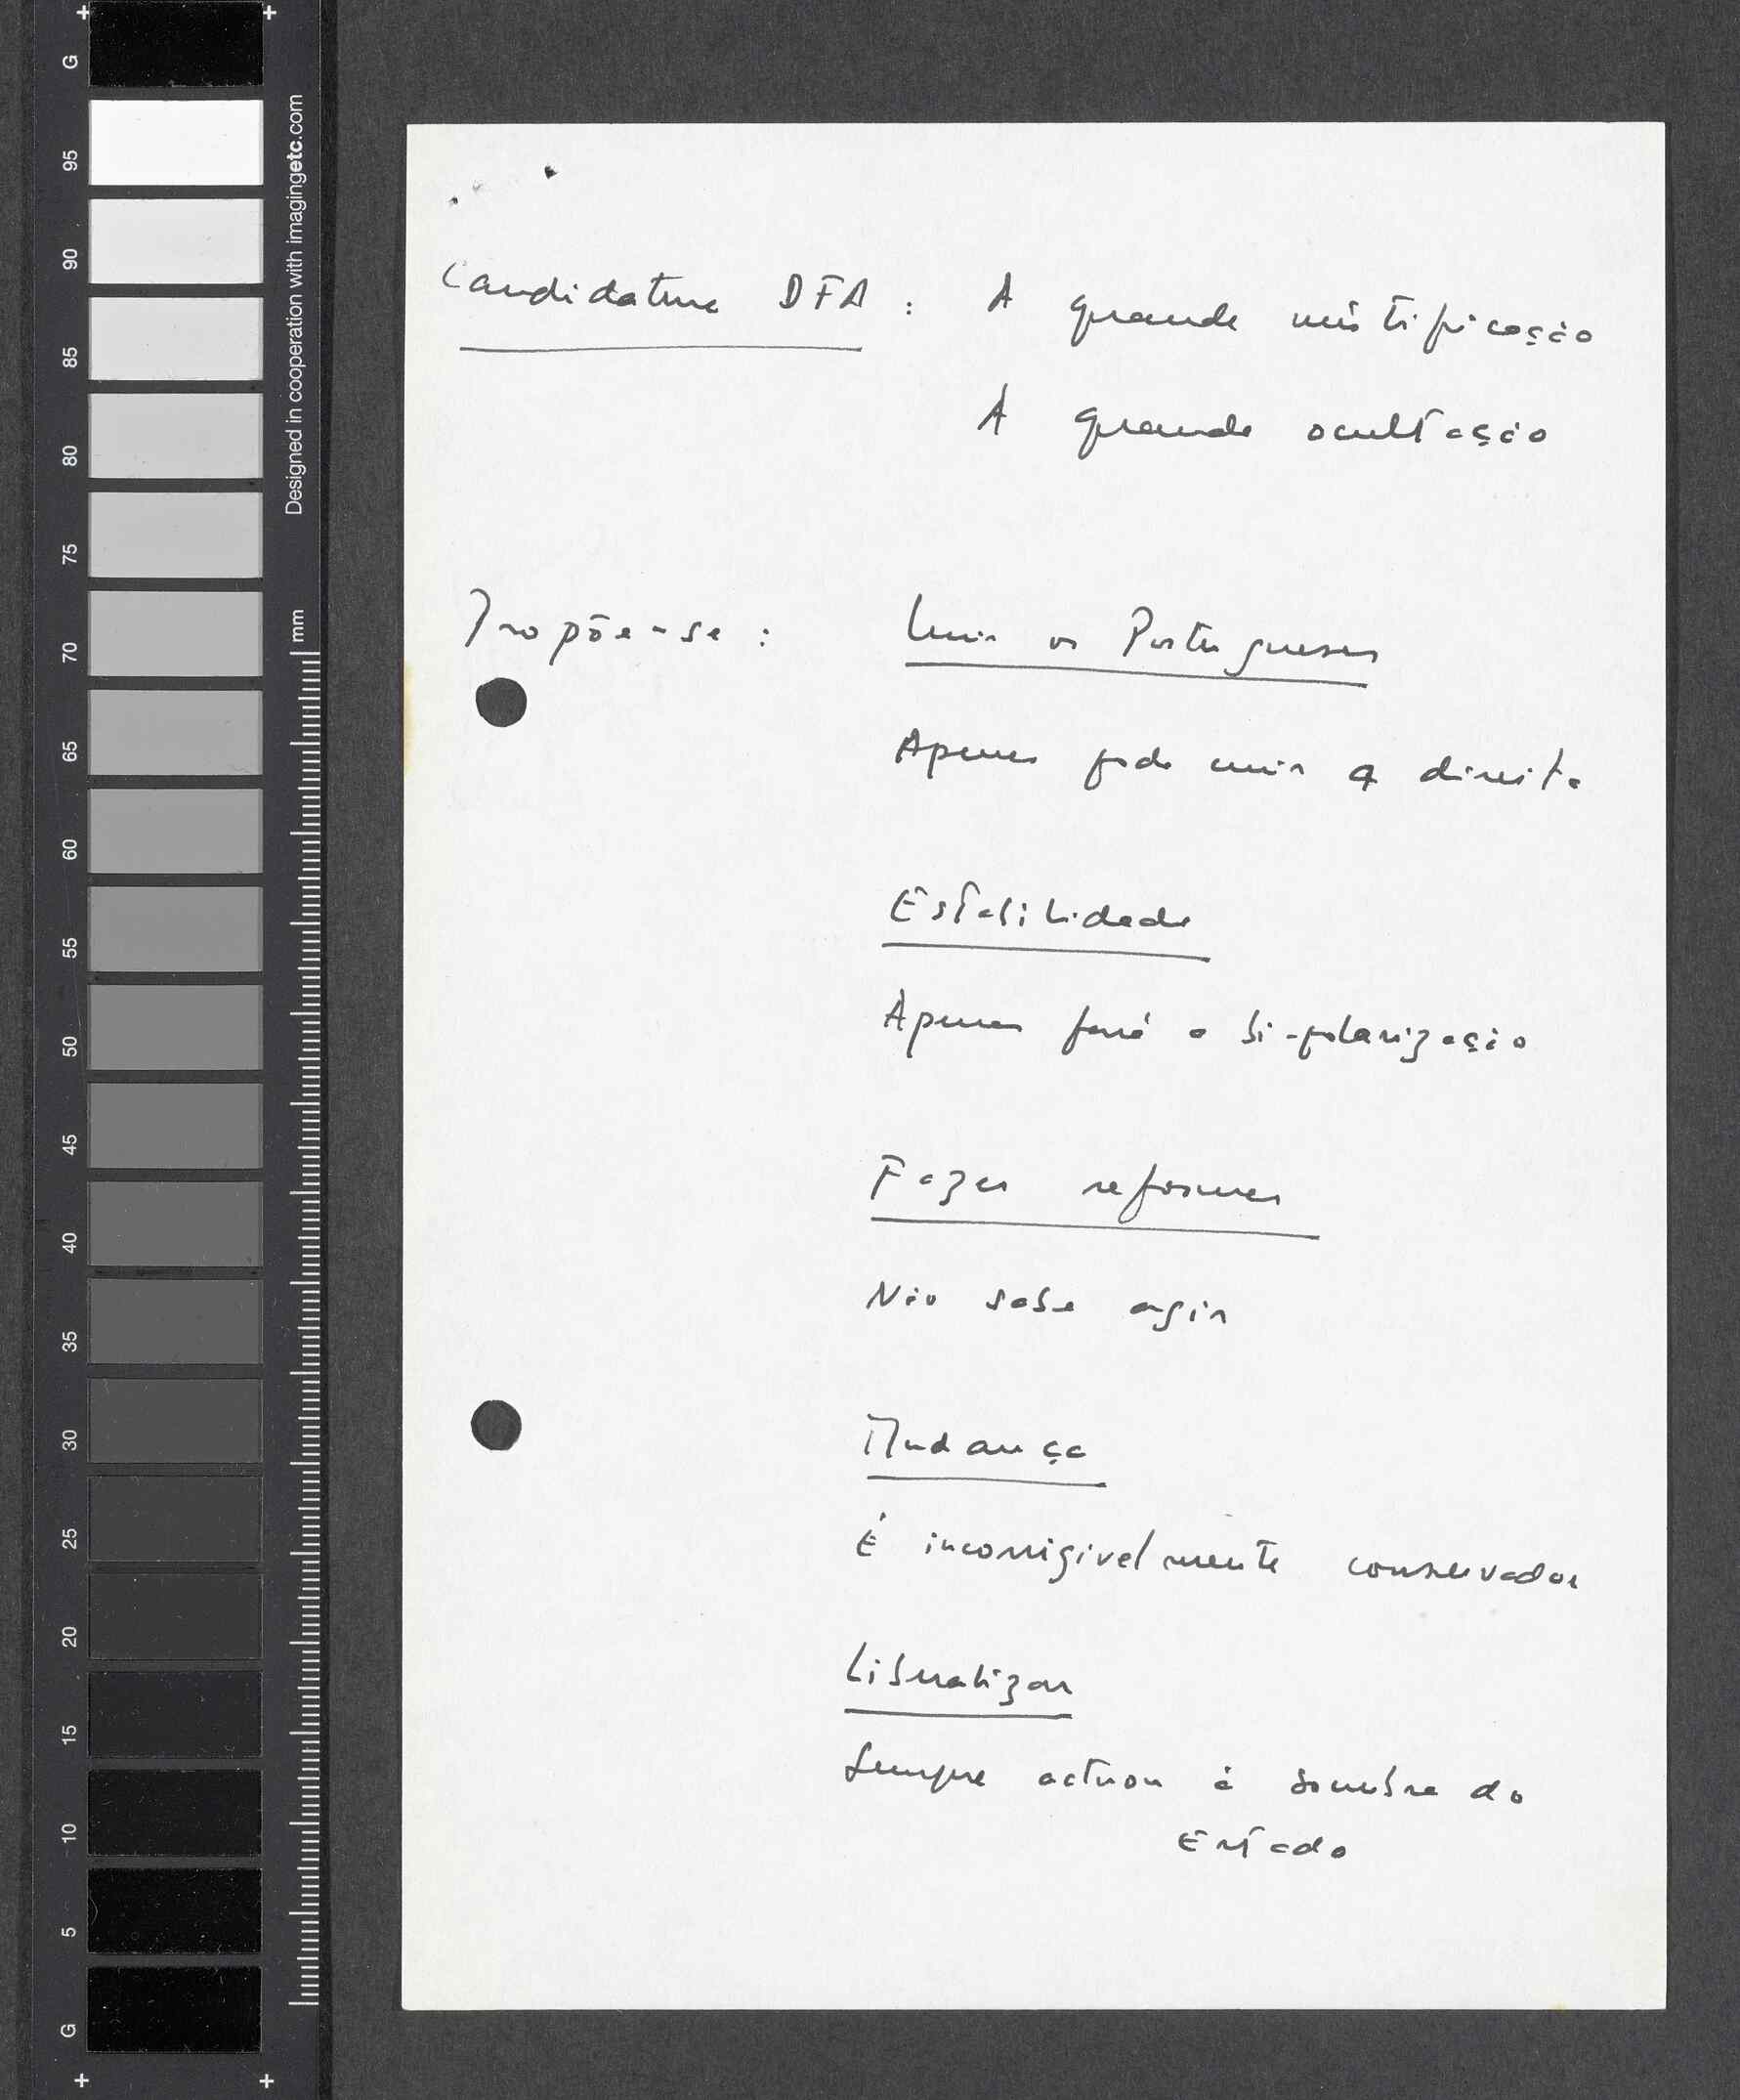 Candidatura DFA : A grande mistificação
A grande ocultação
Propõe-se : Unir os Portugueses
Apenas pode unir a direita
Estabilidade
Apenas fará a bi-polarização
Fazer reformas
Não sabe agir
Mudança
É incorrigivelmente conservador
Liberalizar
Sempre actuou à sombra do
Estado
G
95
90
85
80
75
70
65
60
55
50
45
40
35
30
25
20
15
10
5
G
Designed in cooperation with imagingetc.com
mm